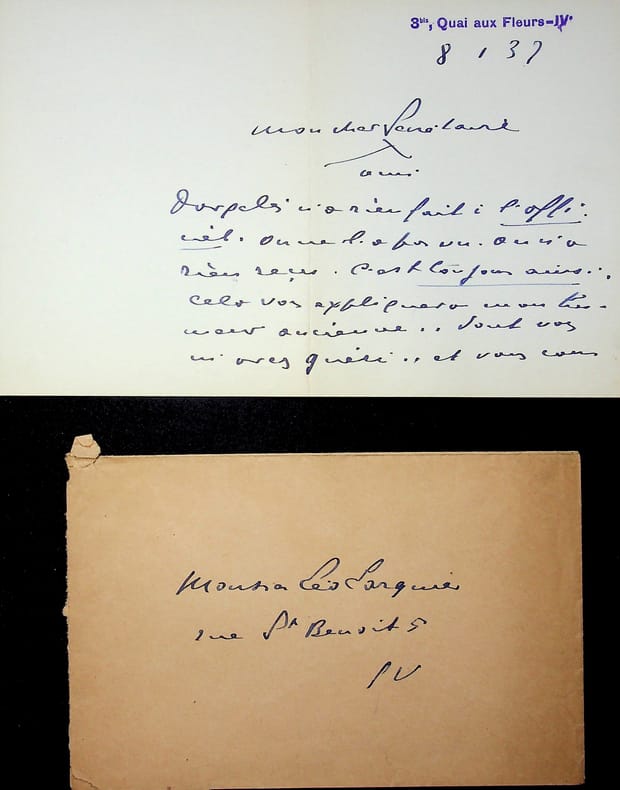 3bis, Quai aux Fleurs-IVe
8 1 37
mon cher Secrétaire
ami
Dorgelès n'a rien fait à l'offi-
ciel. On ne l'a pas vu. On n'a
rien reçu. C'est toujours ainsi..
Cela vous expliquera mon hu-
meur ancienne.. dont vous
m'avez guéri.. et vous
Monsieur Léo Larguier
rue St Benoit 5